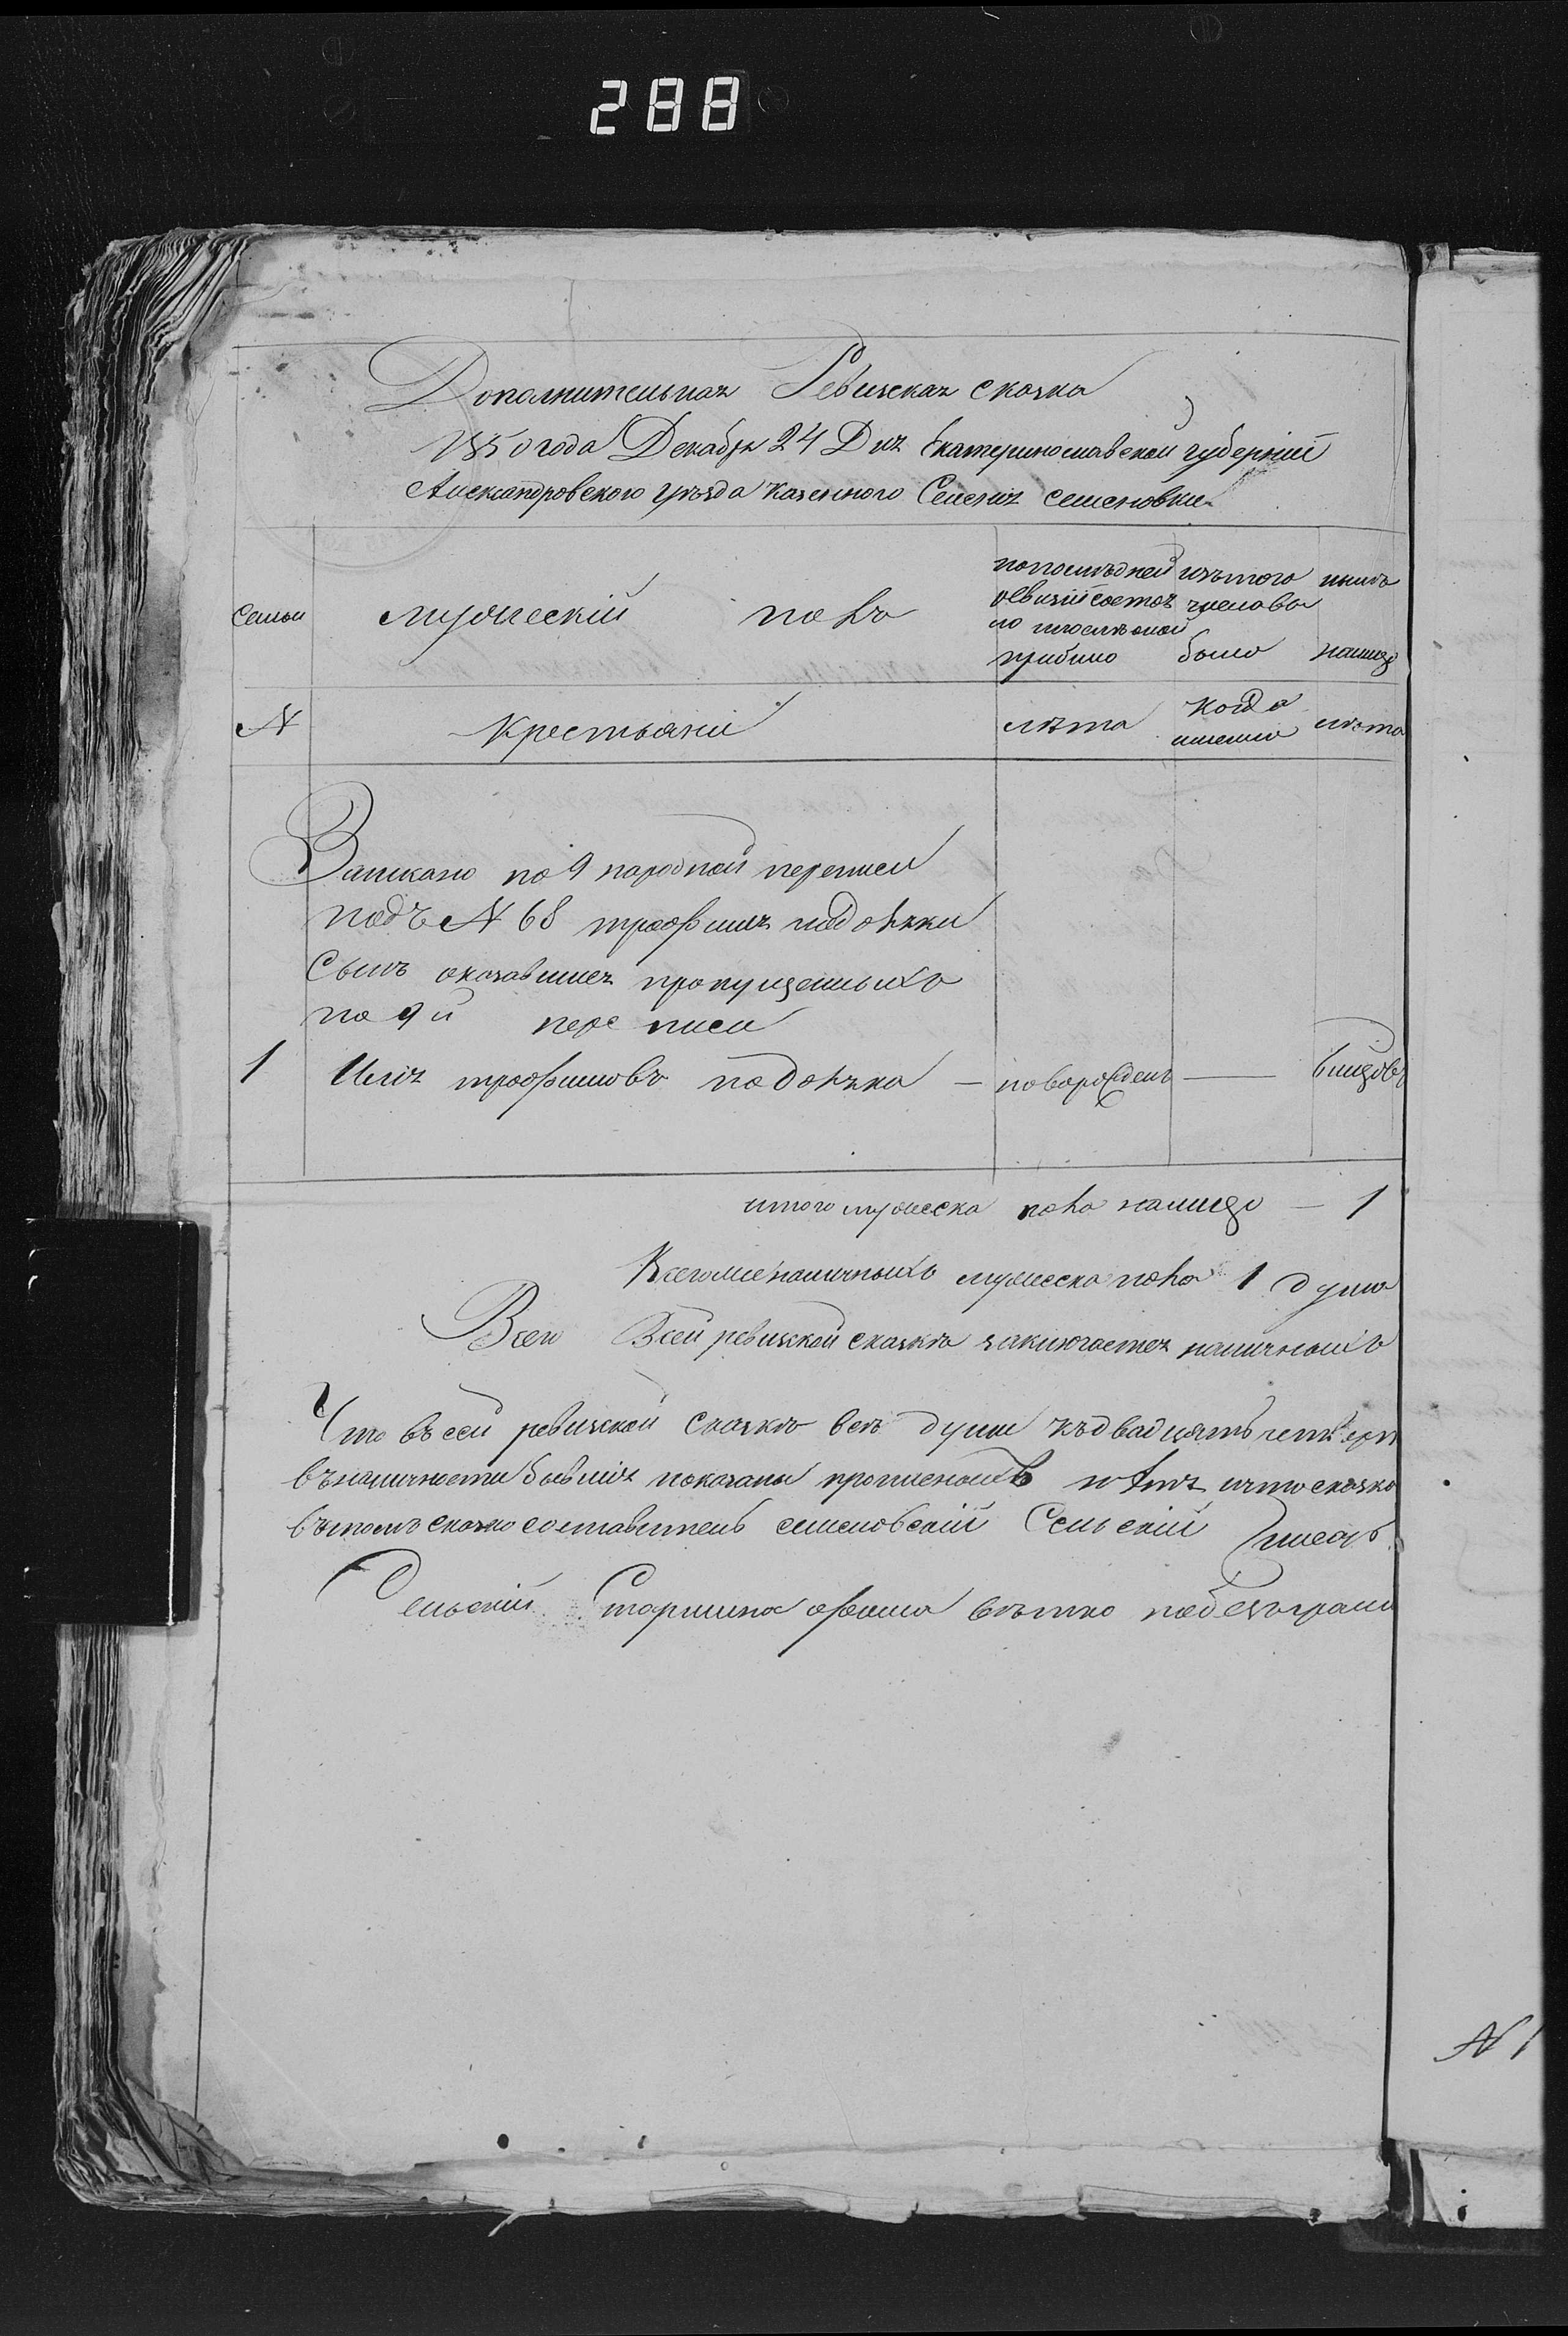 288
Дополнительная Ревиская скаска
1850 года Декабря 24 Дня Екатеринославской губерніи
Александровского уѣзда казенного Селенія Семеновки
Семьи
мужескій полъ
по последней ревизіи состоя
ло и после оной
прибыло
изъ того числа
было
нынѣ
налицо
N
Крестьяніи
лѣта
когда
именно
лѣта
Записано по 9 народной переписи
подъ N 68 трофима
Сынъ оказавшися пропущеныхъ
по 9й переписи
1 Илія трофимовъ — новорожденъ —
итого мужеска пола налицо — 1
мужеска пола 1 душа
Всего Всей ревиской скаскѣ заключается наличныхъ
Что въ сей ревиской скаскѣ все души къ двадцать четвер
въ наличности бывшія показаны и что скаска
составитель семеновскій Сельскій Писарь
Сельскій Старшина
N 1